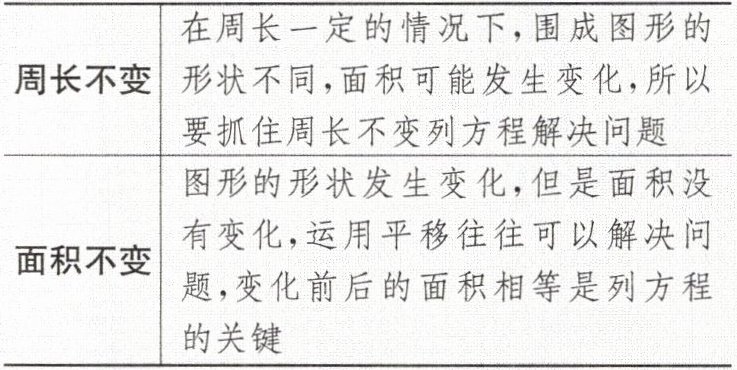 周长不变
在周长一定的情况下,围成图形的
形状不同,面积可能发生变化,所以
要抓住周长不变列方程解决问题
面积不变
图形的形状发生变化,但是面积没
有变化,运用平移往往可以解决问
题,变化前后的面积相等是列方程
的关键